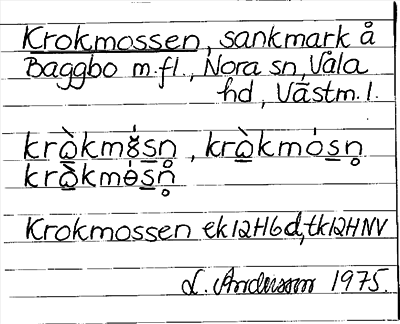 Krokmossen, sankmark å
Baggbo m.fl., Nora sn, Våla
hd, Västm. l.
kråkmosn, kråkmósn
kråkmosn
Krokmossen ek12H6d, tk12HNV
L. Andersson 1975.